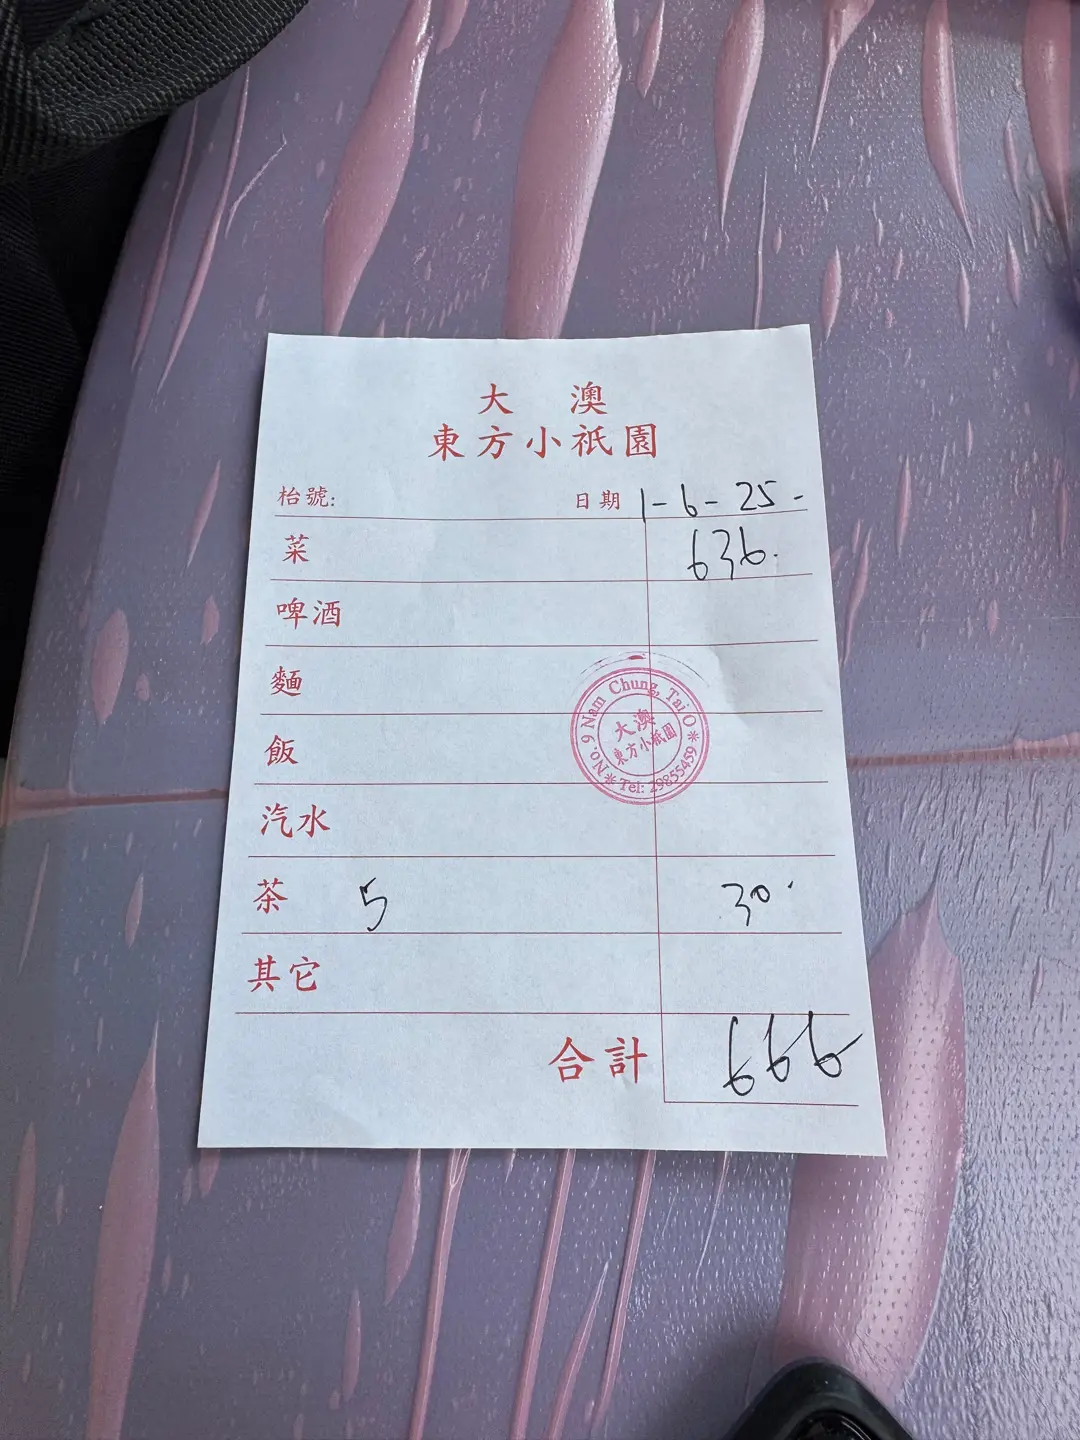 大 澳
東方小祇園
枱號:
日期 1-6-25-
菜 636.
啤酒
麵
飯
No. 9 Nam Chung, Tai O
大澳
東方小祇園
Tel: 29855459
汽水
茶 5 30.
其它
合計 666